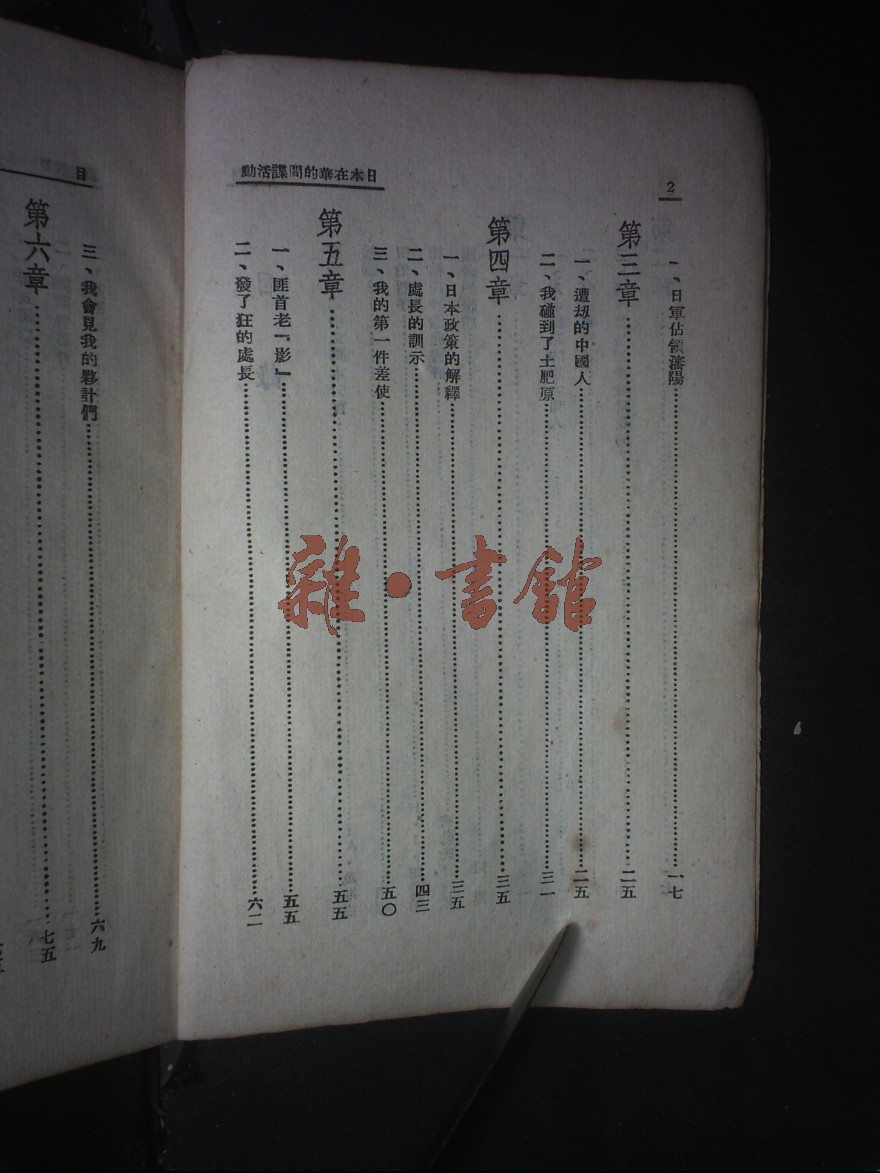 日本在華的間諜活動
2
一、日軍佔領瀋陽………一七
第三章………二五
一、遭刧的中國人………二五
二、我碰到了土肥原………三一
第四章………三五
一、日本政策的解釋………三五
二、處長的訓示………四三
三、我的第一件差使………五〇
第五章………五五
一、匪首老『影』………五五
二、發了狂的處長………六二
目
三、我會見我的夥計們………六九
第六章………七五
雜·書館